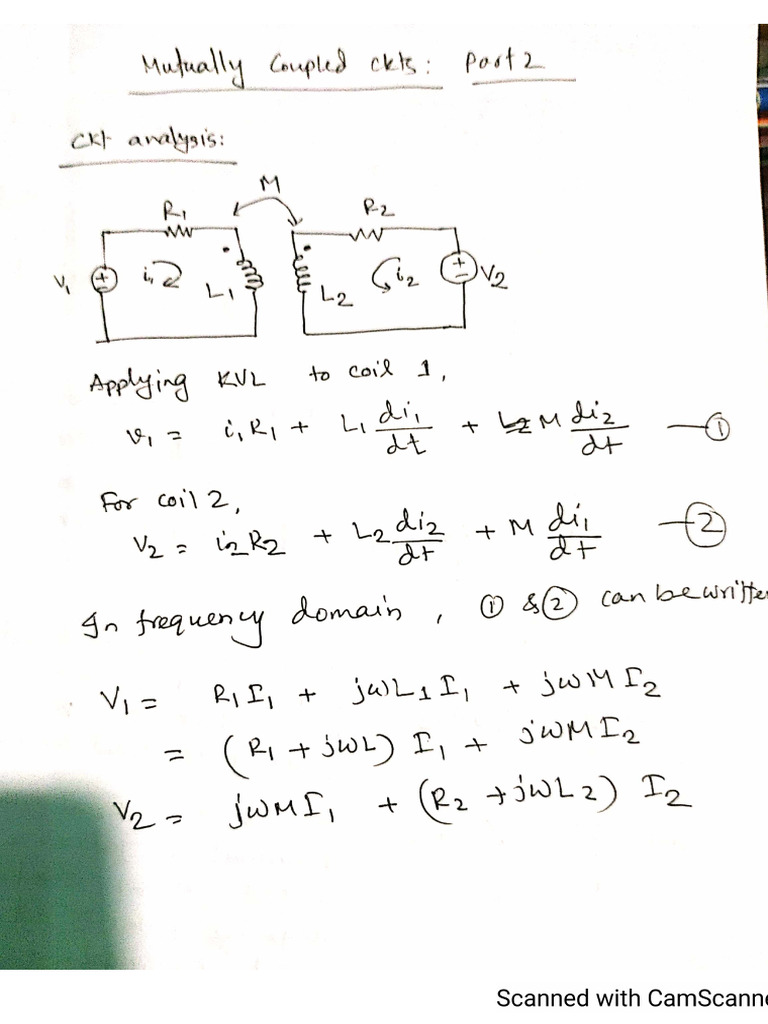 Mutually Coupled ckts: Part 2
Ckt analysis:
M
R1 R2
V1 + i1 L1 L2 i2 + V2
Applying KVL to coil 1,
v1 = i1R1 + L1 di1/dt + M di2/dt —①
For coil 2,
V2 = i2R2 + L2 di2/dt + M di1/dt —②
In frequency domain, ① & ② can be written
V1 = R1I1 + jωL1I1 + jωMI2
= (R1 + jωL) I1 + jωMI2
V2 = jωMI1 + (R2 + jωL2) I2
Scanned with CamScanne